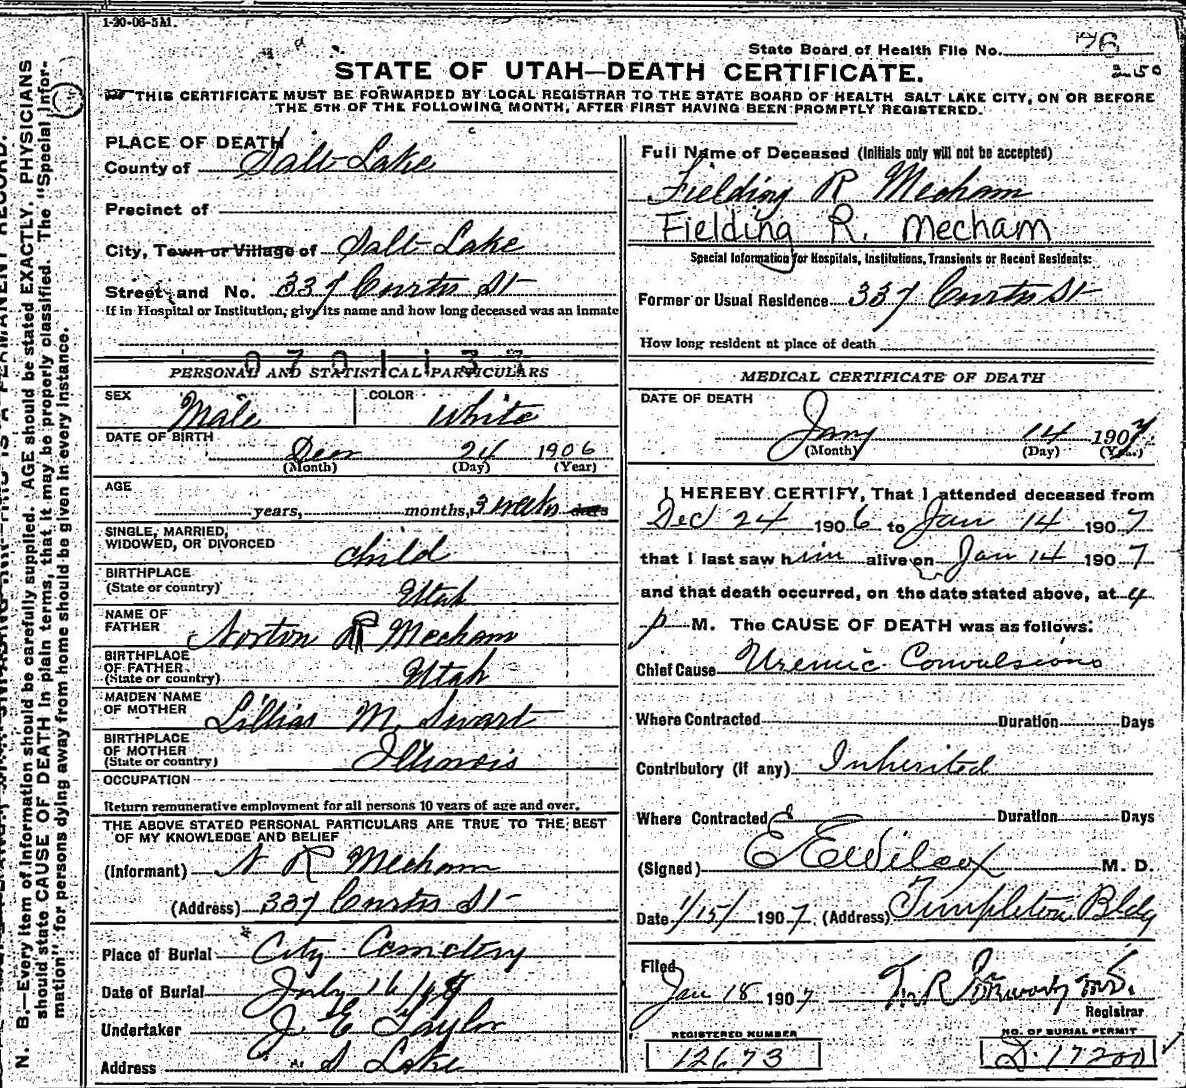 1-20-06-5M.
State Board of Health File No. 76
250
STATE OF UTAH—DEATH CERTIFICATE.
THIS CERTIFICATE MUST BE FORWARDED BY LOCAL REGISTRAR TO THE STATE BOARD OF HEALTH SALT LAKE CITY, ON OR BEFORE
THE 5TH OF THE FOLLOWING MONTH, AFTER FIRST HAVING BEEN PROMPTLY REGISTERED.
PLACE OF DEATH
County of Salt Lake
Precinct of
City, Town or Village of Salt Lake
Street and No. 337 Curtis St
If in Hospital or Institution, give its name and how long deceased was an Inmate
0701137
PERSONAL AND STATISTICAL PARTICULARS
SEX Male COLOR White
DATE OF BIRTH
Decr 24 1906
(Month) (Day) (Year)
AGE
years, months, 3 weeks days
SINGLE, MARRIED,
WIDOWED, OR DIVORCED child
BIRTHPLACE
(State or country) Utah
NAME OF
FATHER Norton R Mecham
BIRTHPLACE
OF FATHER
(State or country) Utah
MAIDEN NAME
OF MOTHER Lillias M. Swart
BIRTHPLACE
OF MOTHER
(State or country) Illinois
OCCUPATION
Return remunerative employment for all persons 10 years of age and over.
THE ABOVE STATED PERSONAL PARTICULARS ARE TRUE TO THE BEST
OF MY KNOWLEDGE AND BELIEF
(Informant) N R Mecham
(Address) 337 Curtis St
Place of Burial City Cemetery
Date of Burial 16
Undertaker J E Taylor
Address S Lake
Full Name of Deceased (Initials only will not be accepted)
Fielding R Mecham
Fielding R. Mecham
Special Information for Hospitals, Institutions, Transients or Recent Residents:
Former or Usual Residence 337 Curtis St
How long resident at place of death
MEDICAL CERTIFICATE OF DEATH
DATE OF DEATH
Jany 14 1907
(Month) (Day) (Year)
I HEREBY CERTIFY, That I attended deceased from
Dec 24 1906 to Jan 14 1907
that I last saw him alive on Jan 14 1907
and that death occurred, on the date stated above, at 4
p M. The CAUSE OF DEATH was as follows:
Chief Cause Uremic Convulsions
Where Contracted Duration Days
Contributory (if any) Inherited
Where Contracted Duration Days
(Signed) E E Wilcox M. D.
Date 1/15/ 1907 (Address) Templeton Bldg
Filed
Jan 18 1907
Registrar
REGISTERED NUMBER
12673
NO. OF BURIAL PERMIT
D. 17200
N. B.—Every item of information should be carefully supplied. AGE should be stated EXACTLY. PHYSICIANS
should state CAUSE OF DEATH in plain terms, that it may be properly classified. The "Special Infor-
mation" for persons dying away from home should be given in every instance.